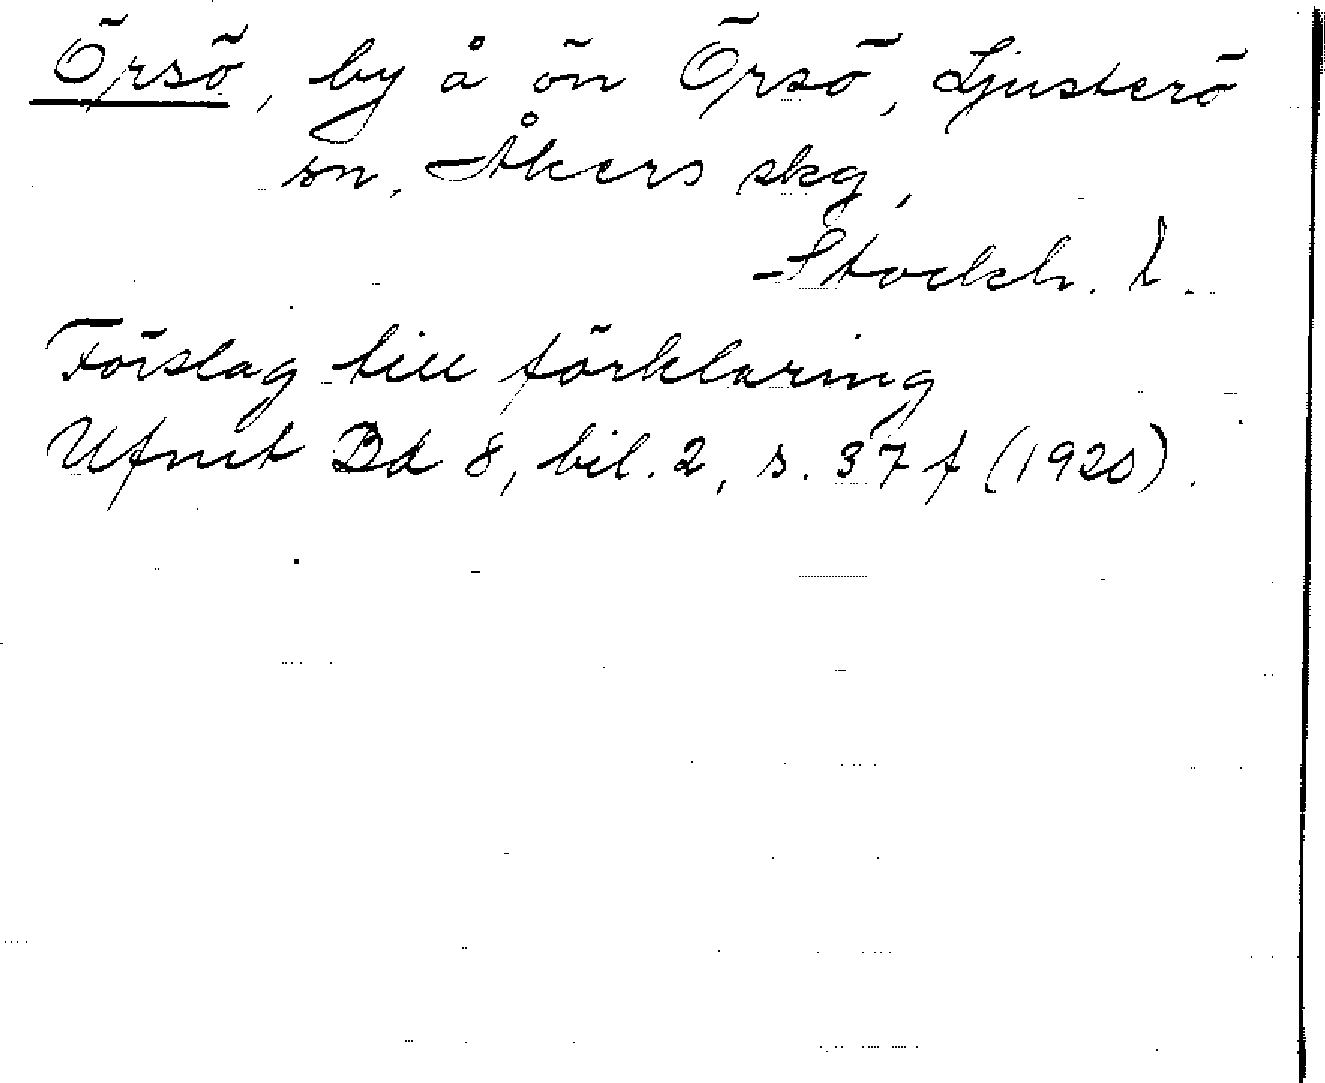 Örsö, by å ön Örsö, Ljusterö
sn, Åkers skg,
Stockh. l.
Förslag till förklaring
Ufmt Bd 8, bil. 2, s. 37 f (1920).